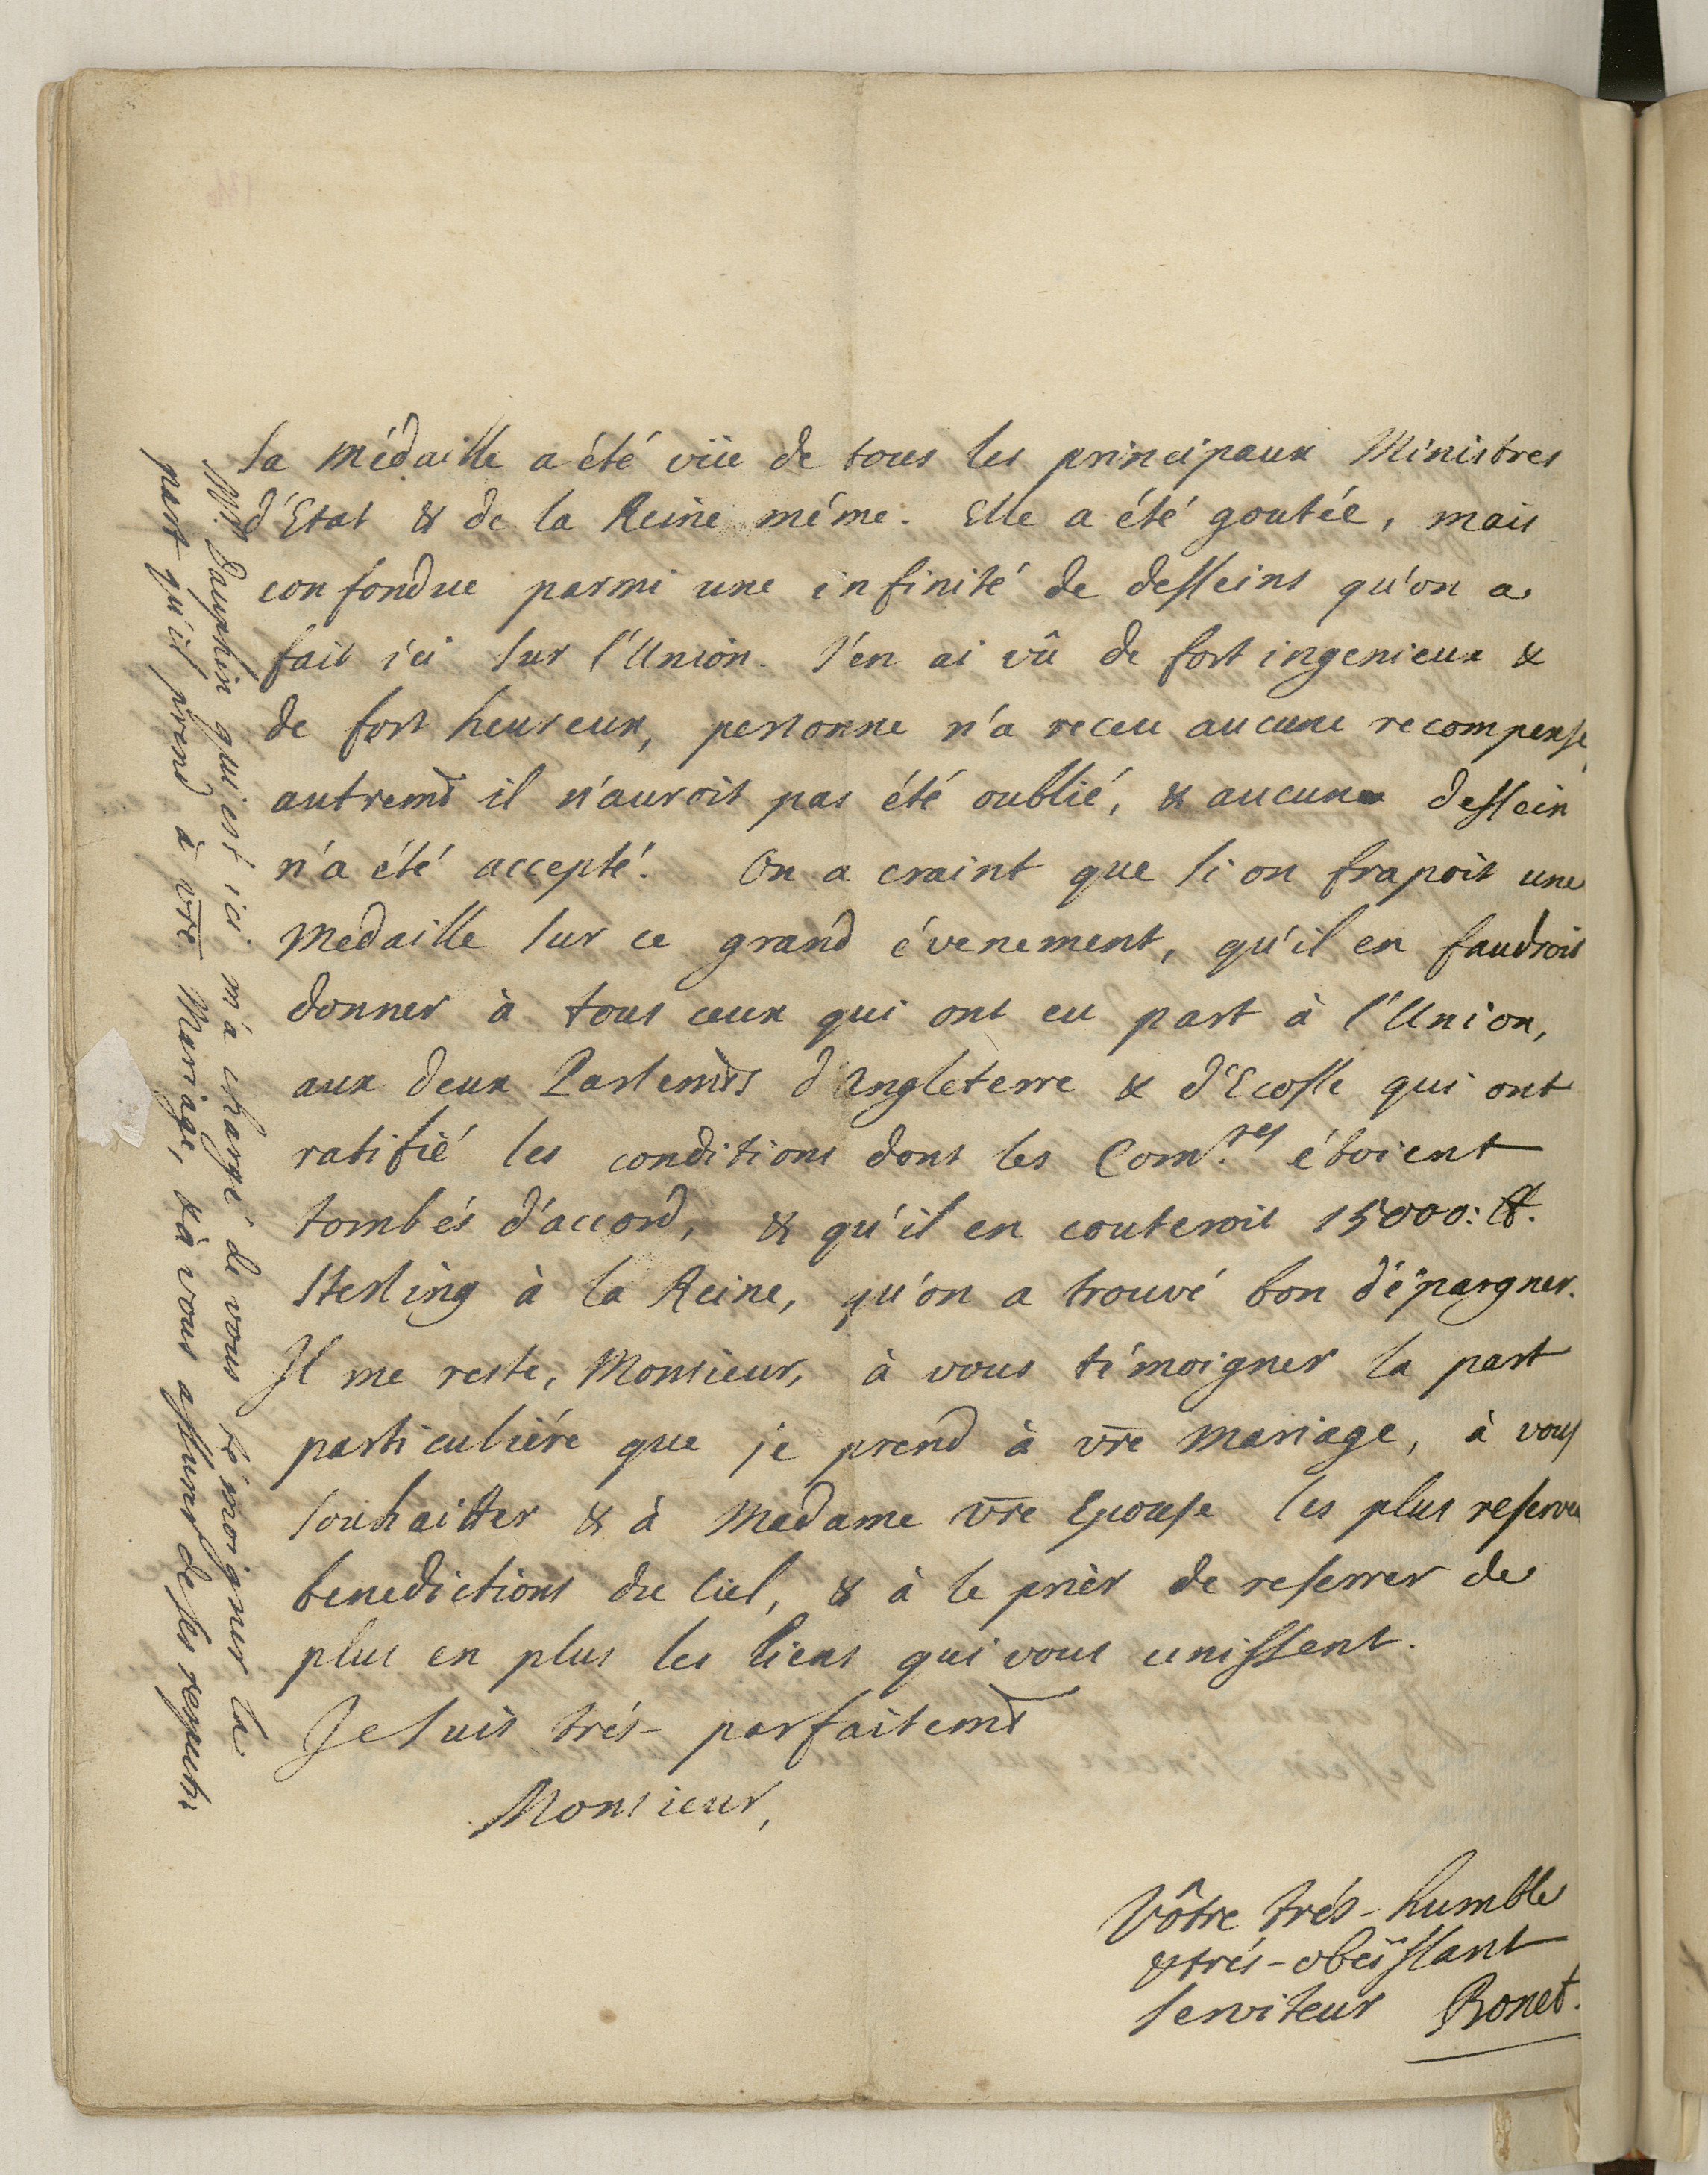 Sa médaille a été vüe de tous les principaux Ministres
d'Etat & de la Reine méme. Elle a été goutée, mais
confondue parmi une infinité de desseins qu'on a
fait ici sur l'Union. J'en ai vû de fort ingenieux &
de fort heureux, personne n'a receu aucune recompense,
autremt il n'auroit pas été oublié, & aucun dessein
n'a été accepté. On a craint que si on frapoit une
Medaille sur ce grand évenement, qu'il en faudroit
donner à tous ceux qui ont eu part à l'Union,
aux deux Parlemts d'Angleterre & d'Ecosse qui ont
ratifié les conditions dont les Com.res étoient
tombés d'accord, & qu'il en couteroit 15000: ₶.
Sterling à la Reine, qu'on a trouvé bon d'épargner.
Il me reste, Monsieur, à vous témoigner la part
particuliére que je prend à vre mariage, à vous
souhaitter & à Madame vre Epouse les plus reservé
benedictions du Ciel, & à le prier de reserrer de
plus en plus les liens qui vous unissent.
Je suis trés-parfaitemt
Monsieur,
Vôtre trés-humble
& trés-obeïssant
serviteur Bonet.
Mr. Dauphin qui est ici m'a chargé de vous témoigner la
part qu'il prend à vre Mariage, & à vous assurer de ses respects